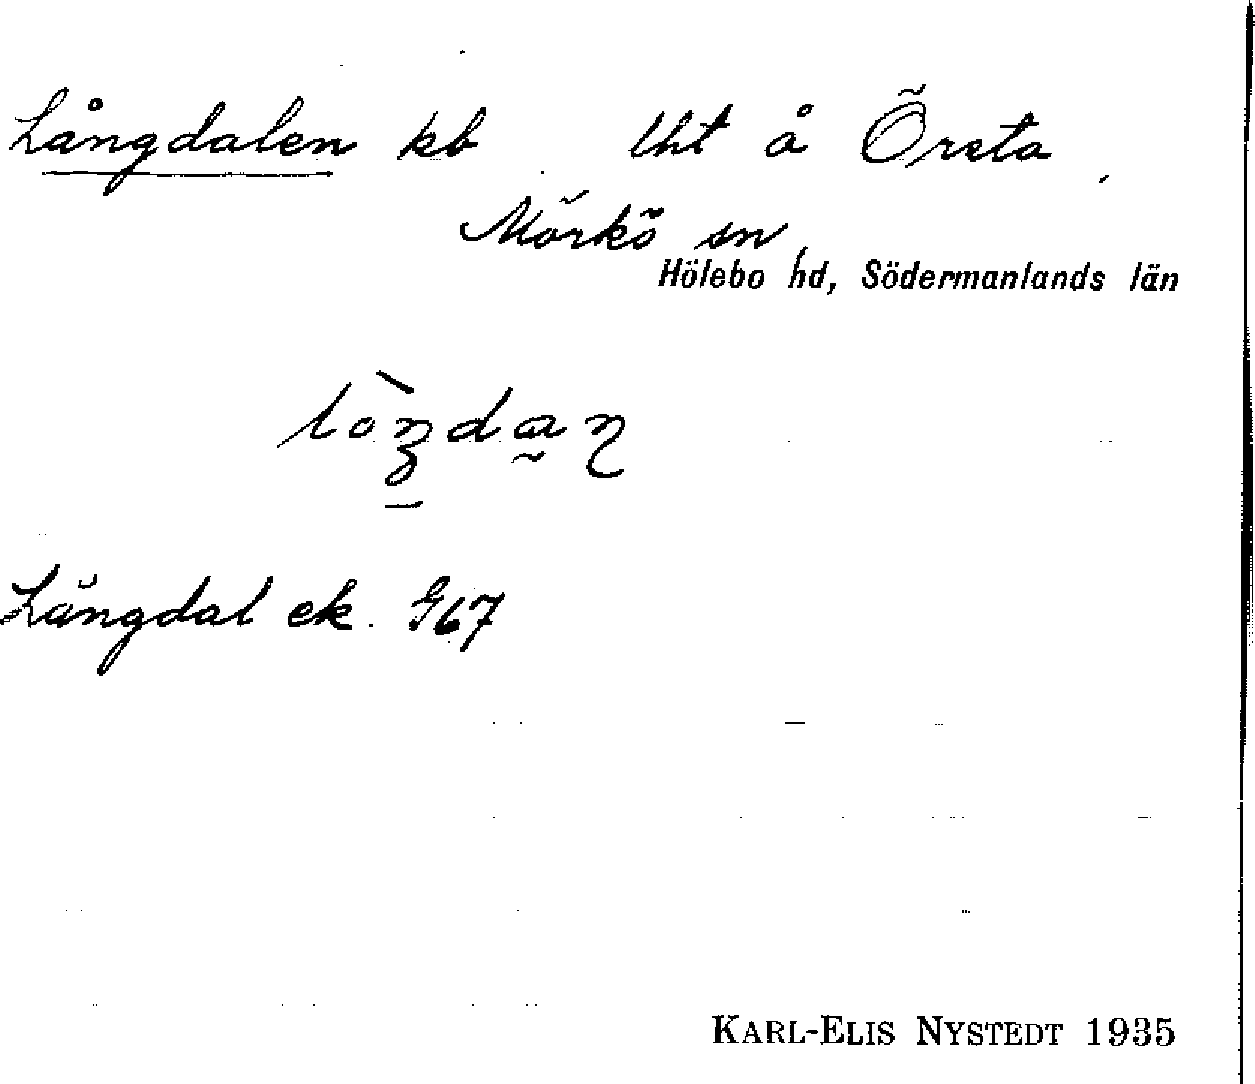 Långdalen kb lht å Örsta
Mörkö sn
Hölebo hd, Södermanlands län
Långdal ek. G67
KARL-ELIS NYSTEDT 1935